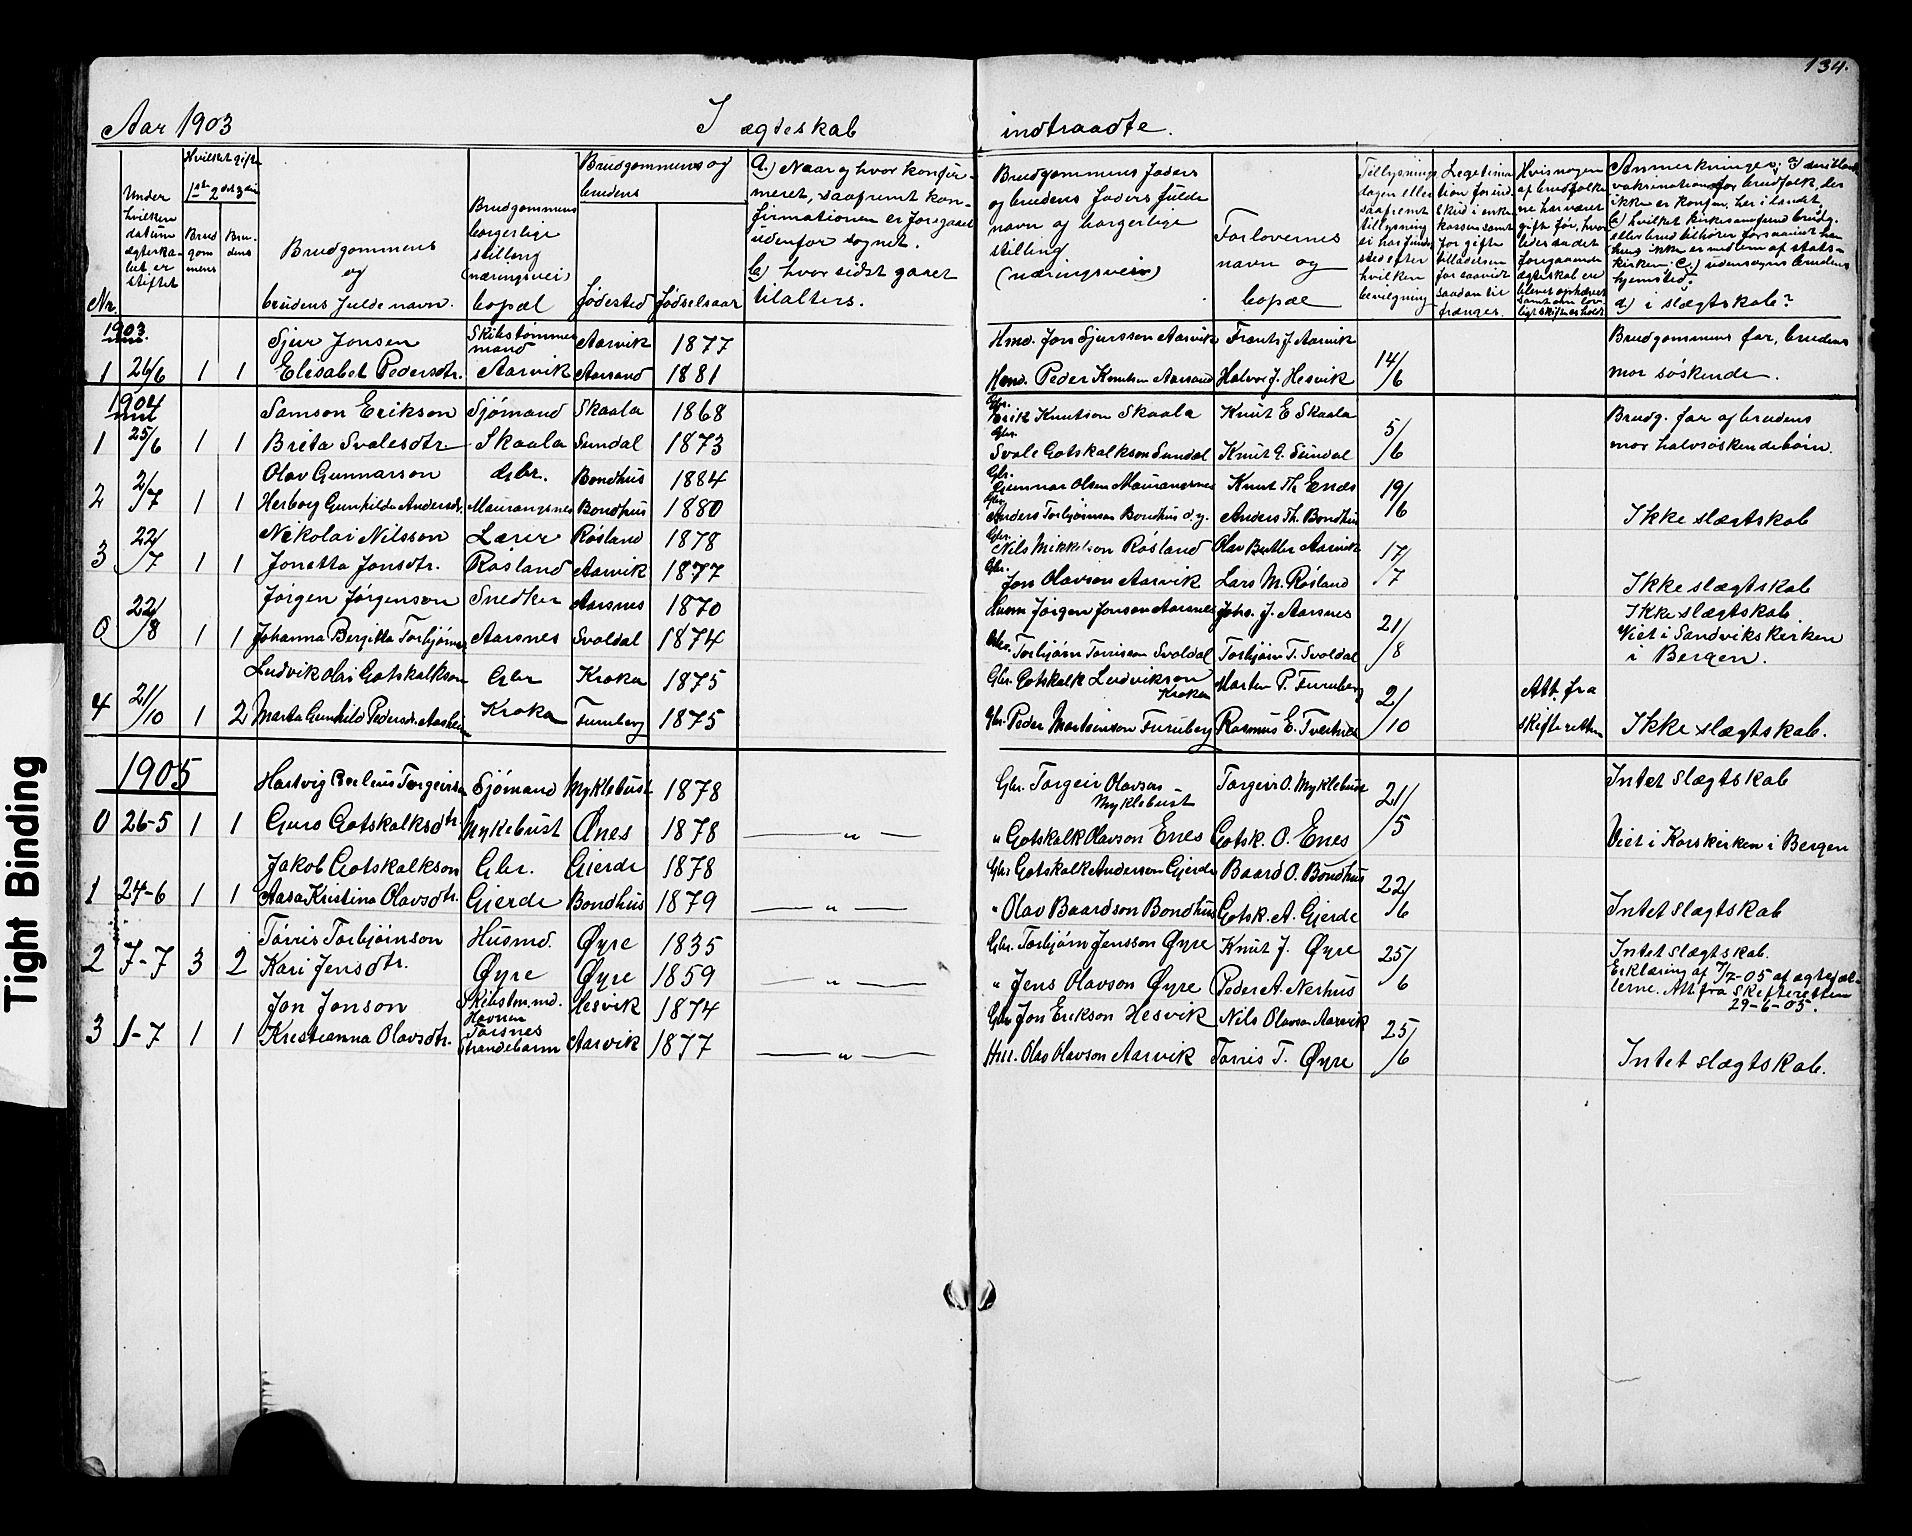 134.
Aar 1903 I ægteskab indtraadte.
Nr.
Under hvilken datum ægteska- bet er stiftet
Hvilket gifte
1ste 2det 3die
Brud gom mens
Bru- dens
Brudgommens og brudens fulde navn.
Brudgommens borgerlige stilling (næringsvei) bopæl
Brudgommens og brudens
fødested fødselsaar
a.) Naar og hvor konfir- meret, saafremt kon- firmationen er foregaaet udenfor sognet.
b) hvor sidst gaaet tilalters.
Brudgommens faders og brudens faders fulde navn og borgerlige stilling (næringsvein)
Forlovernes navn og bopæl
Tillysnings dagen eller saafremt tillysning ei har fundet sted efter hvilken bevilgning
Legitima tion for ind skud i enke kassen samt for gifte
Hvis nogen af brudfolke ne har været gift før, hvor
Anmerkninger; a) den tilands vaksination for brudfolk, der ikke er konfm. her i landet.
b) hvilket kirkesamfund brudg. eller brud tilhører forsaavidt han hun ikke er medlem af stats- kirken. c.) udensogns brudens hjemsted.
d) i slægtskab?
1903
Sjur Jonsen Skibstømmer mand Aarvik 1877 Hmd. Jon Sjursson Aarvik Frants J. Aarvik Brudgommens far, brudens
1 26/6 1 1 Elisabet Pedersdtr. Aarvik Aarsand 1881 Hmd. Peder Knutsen Aarsand Halvor J. Hesvik 14/6 mor søskende.
1904
Samson Erikson Sjømand Skaala 1868 Gbr. Erik Knutson Skaala Knut E Skaala Brudg. far og brudens
1 25/6 1 1 Brita Svalesdtr. Skaala Sundal 1873 Gbr. Svale Gotskalkson Sundal Knut G. Sundal 5/6 mor halvsøskendebørn.
Olav Gunnarson Gbr. Bondhus 1884 Gbr. Gunnar Olsen Maurangsnes Knut Th. Enes
2 2/7 1 1 Herborg Gunhilde Andersdr. Maurangsnes Bondhus 1880 Gbr. Anders Torbjørnson Bondhus d.y. Anders Th. Bondhus 19/6 Ikke slægtskab
Nikolai Nilsson Lærer Røsland 1878 Gbr. Nils Mikkelson Røsland Olav Butler Aarvik
3 22/7 1 1 Jonetta Jonsdtr. Røsland Aarvik 1877 Gbr. Jon Olavson Aarvik Lars M. Røsland 17/7 Ikke slægtskab
Jørgen Jørgenson Snedker Aarsnes 1870 Husm Jørgen Jonson Aarsnes Johs. J. Aarsnes Ikke slægtskab.
0 22/8 1 1 Johanna Bergitta Torbjørns Aarsnes Svoldal 1874 Gbr. Torbjørn Torrisson Svoldal Torbjørn T. Svoldal 21/8 Viet i Sandvikskirken i Bergen.
Ludvik Olai Gotskalkson Gbr Kroka 1875 Gbr. Gotskalk Ludvikson Kroka Marten P. Furuberg Att. fra
4 21/10 1 2 Marta Gunhild Pedersdr. Aasheim Kroka Furuberg 1875 Gbr. Peder Martinson Furuberg Rasmus E. Tveitnes 2/10 skifteretten Ikke slægtskab.
1905
Hartvig Torgeirsn Sjømand Myklebust 1878 Gbr. Torgeir Olavson Myklebust Torgeir O. Myklebust Intet slægtskab
0 26-5 1 1 Guro Gotskalksdtr Mykebust Ænes 1878 — " — " Gotskalk Olavson Enes Gotsk. O. Enes 21/5 Viet i Korskirken i Bergen
Jakob Gotskalkson Gbr. Gjerde 1878 Gbr Gotskalk Anderson Gjerde Baard O. Bondhus
1 24-6 1 1 Aasa Kristina Olavsdtr. Gjerde Bondhus 1879 — " — " Olav Baardson Bondhus Gotsk. A. Gjerde 22/6 Intet slægtskab
Tørris Torbjørnson Husmd. Øyre 1835 Gbr. Torbjørn Jensson Øyre Knut J. Øyre Intet slægtskab.
2 7-7 3 2 Kari Jensdtr. Øyre Øyre 1859 — " — " Jens Olavson Øyre Peder A. Nerhus 25/6 Erklæring af 7/7-05 af ægtefæl- lerne. Att. fra Skifteretten 29-6-05.
Jon Jonson Skibstm.md. Hesvik 1874 Gbr Jon Erikson Hesvik Nils Olavson Aarvik
3 1-7 1 1 Kristianna Olavsdtr. Havnen Torsnes Strandebarm Aarvik 1877 — " — Olav Olavson Aarvik Tørris T. Øyre 25/6 Intet slægtskab.
Tight Binding